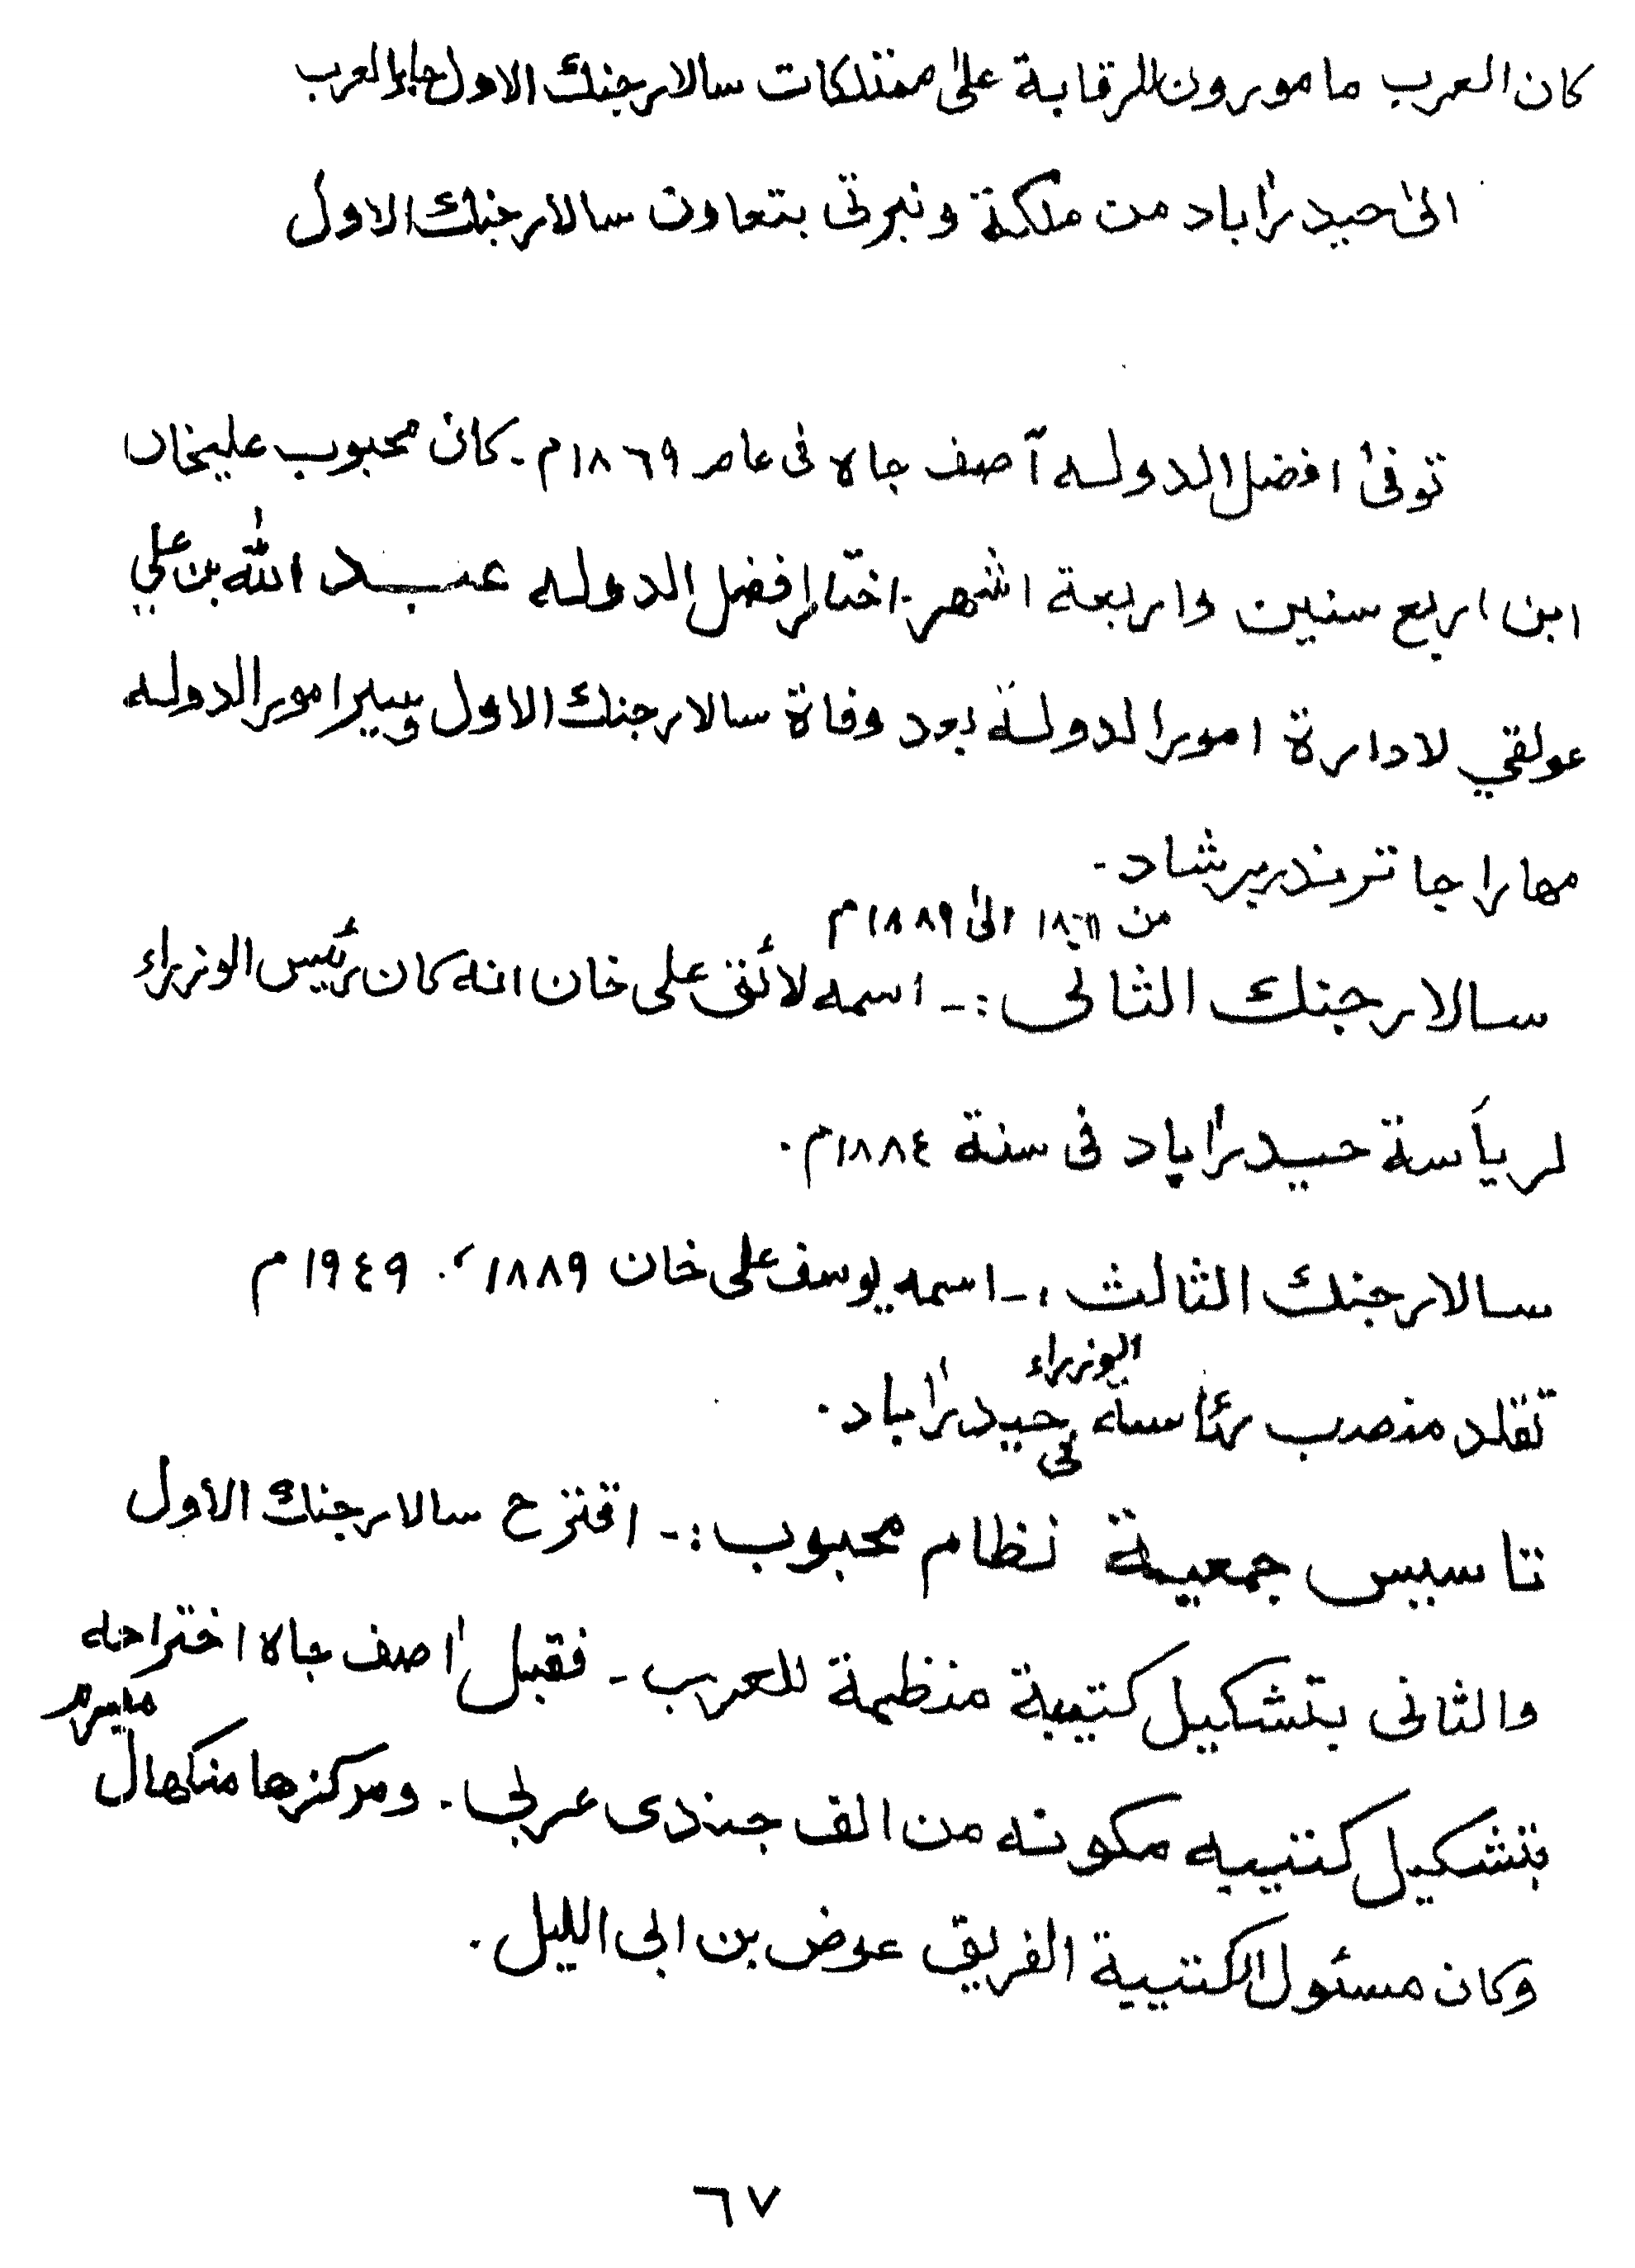 كان العرب مامورون للرقابة على ممتلكات سالارجنك الاول جاء العرب
الىٰ حيدرآباد من مكة ونبرتى بتعاون سالارجنك الاول
توفىٰ افضل الدوله آصف جاه فى عام ١٨٦٩م۔ كان محبوب عليخاں
ابن اربع سنين واربعة اشهر۔ اختار افضل الدوله عبد الله بن علي
عولقي لادارة امور الدولة بعد وفاة سالارجنك الاول وسير امور الدوله
مهاراجا ترندر پرشاد۔
من الىٰ ١٨٨٩م
سالارجنك الثانى :۔ اسمه لائق على خان انه كان رئيس الوزراء
لرياسة حيدرآباد فى سنة ١٨٨٤م۔
سالارجنك الثالث :۔ اسمه يوسف على خان ١٨٨٩ء۔ ١٩٤٩م
الوزراء
تقلد منصب رئاسة فى حيدرآباد۔
تاسيس جمعية نظام محبوب :۔ اقترح سالارجنك الأول
والثانى بتشكيل كتيبة منظمة للعرب ۔ فقبل آصف جاه اختراحه
بتشكيل كتيبه مكونه من الف جندى عربى۔ ومركزها منكهال ميسرم
وكان مسئول الكتيبة الفريق عوض بن ابى الليل۔
٦٧